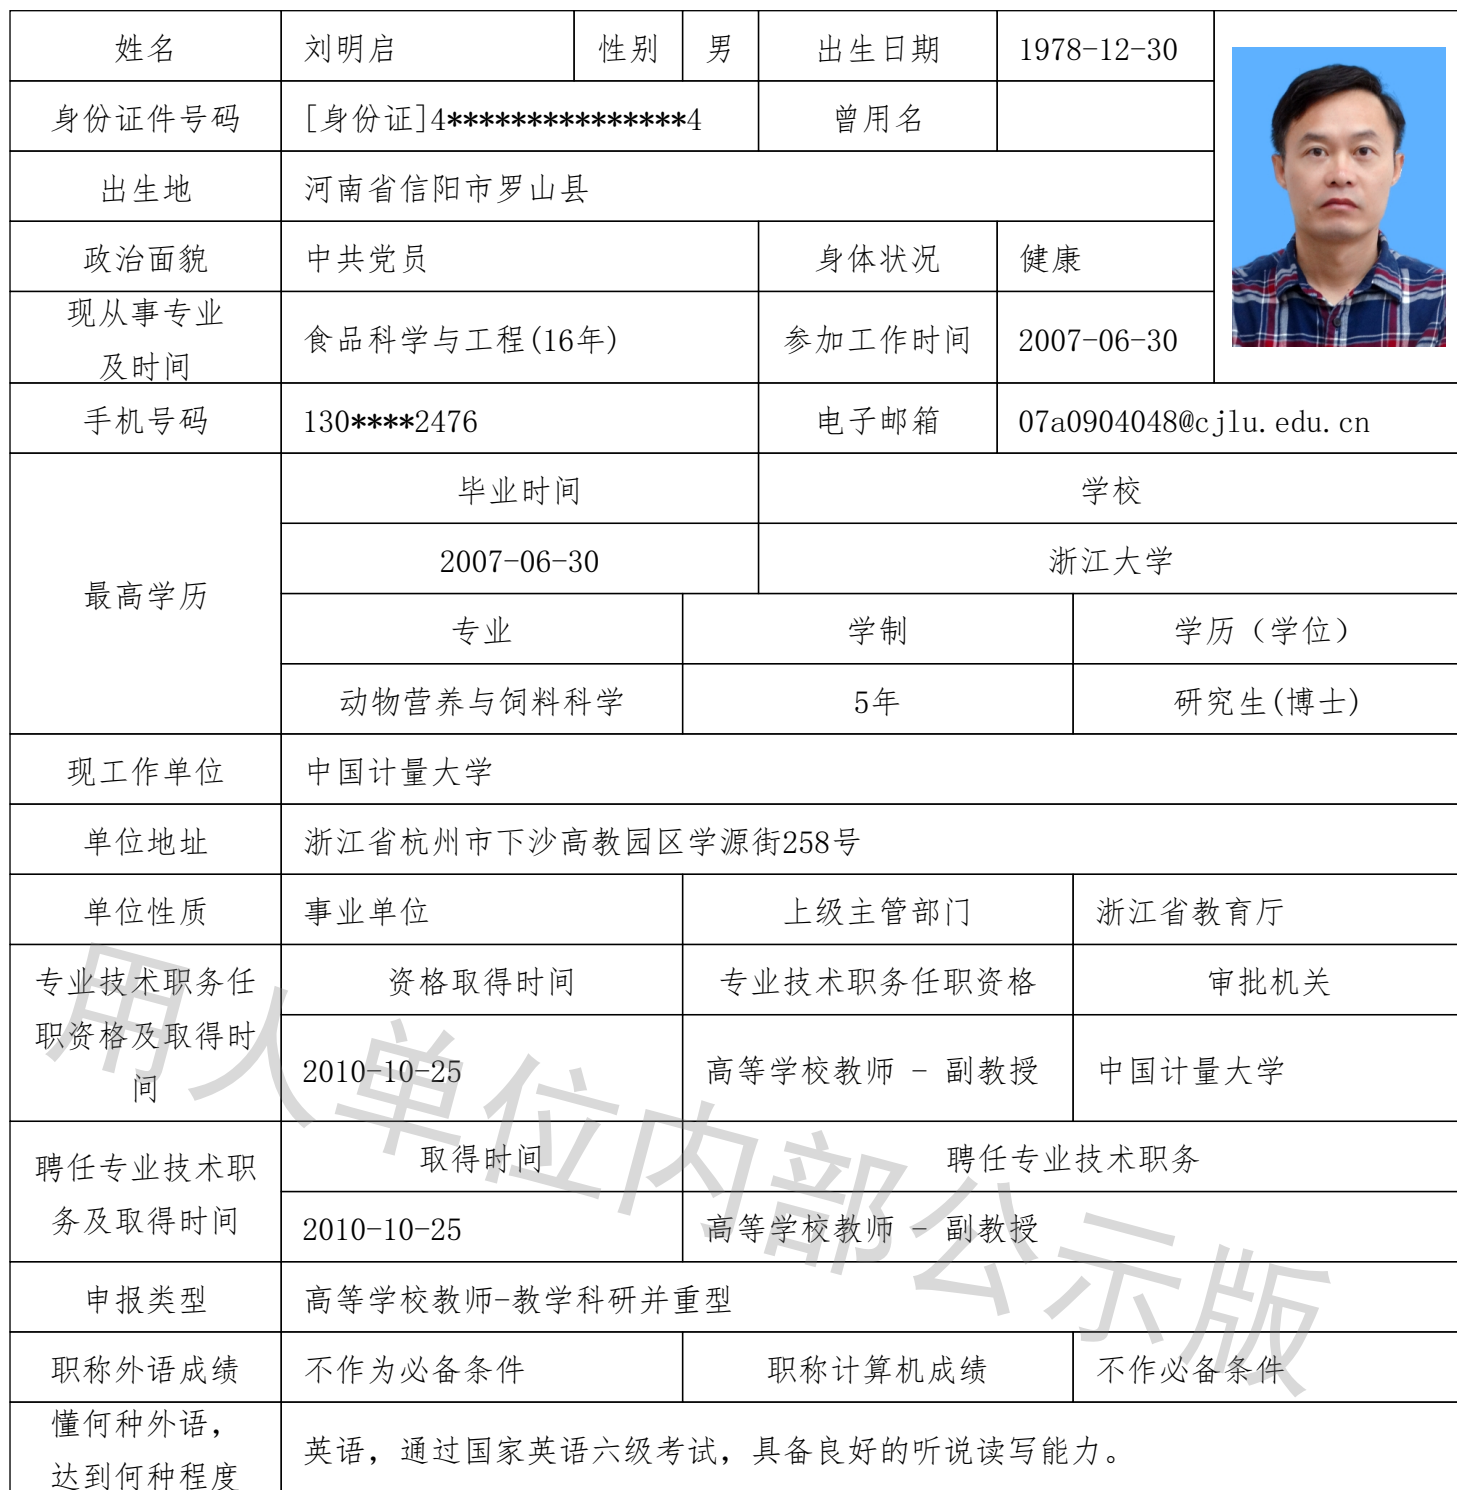 姓名 刘明启 性别 男 出生日期 1978-12-30
身份证件号码 [身份证]4***************4 曾用名
出生地 河南省信阳市罗山县
政治面貌 中共党员 身体状况 健康
现从事专业
及时间
食品科学与工程(16年) 参加工作时间 2007-06-30
手机号码 130****2476 电子邮箱 07a0904048@cjlu.edu.cn
最高学历
毕业时间 学校
2007-06-30 浙江大学
专业 学制 学历（学位）
动物营养与饲料科学 5年 研究生(博士)
现工作单位 中国计量大学
单位地址 浙江省杭州市下沙高教园区学源街258号
单位性质 事业单位 上级主管部门 浙江省教育厅
专业技术职务任
职资格及取得时
间
资格取得时间 专业技术职务任职资格 审批机关
2010-10-25 高等学校教师 - 副教授 中国计量大学
聘任专业技术职
务及取得时间
取得时间 聘任专业技术职务
2010-10-25 高等学校教师 - 副教授
申报类型 高等学校教师-教学科研并重型
职称外语成绩 不作为必备条件 职称计算机成绩 不作必备条件
懂何种外语，
达到何种程度
英语，通过国家英语六级考试，具备良好的听说读写能力。
用人单位内部公示版